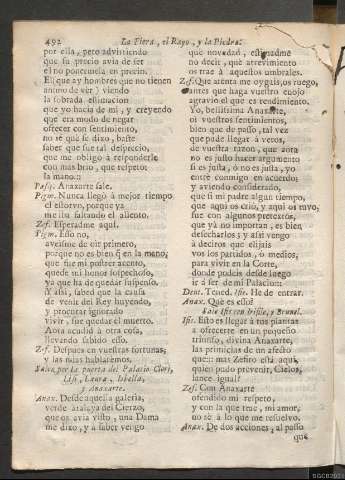 492 La Fiera, el Rayo, y la Piedra.
por ella, pero advirtiendo
que su precio avia de ser
el no ponermela en precio.
El que ay hombres que no tienen
animo de ver) viendo
la sobrada estimacion
que yo hacia de mi, y creyendo
que era modo de negar
ofrecer con sentimiento,
no sè què se dixo, baste
saber que fue tal desprecio,
que me obligò à responderle
con mas brio, que respeto:
la mano::
Pasq. Anaxarte sale.
Pigm. Nunca llegò à mejor tiempo
el estorvo, porque yà
me iba faltando el aliento.
Zef. Esperadme aqui.
Pigm. Esso no,
aveisme de oir primero,
porque no es bien q̃ en la mano,
que fue mi postrer acento,
quede mi honor sospechoso,
yà que ha de quedar suspenso.
Y assi, sabed que la causa
de venir del Rey huyendo,
y procurar ignorado
vivir, fue quedar èl muerto.
Aora acudid à otra cosa,
llevando sabido esso.
Zef. Despues en vuestras fortunas,
y las mias hablarèmos.
Salen por la puerta del Palacio Clori,
Lisi, Laura, Isbella,
y Anaxarte.
Anax. Desde aquella galeria,
verde atalaya del Cierzo,
que os avia visto, una Dama
me dixo, y à saber vengo
que novedad, esperadme
no decir, què atrevimiento
os trae à aquestos umbrales.
Zef. Que atenta me oygais, os ruego,
antes que haga vuestro enojo
agravio el que es rendimiento.
Yo, bellissima Anaxarte,
oì vuestros sentimientos,
bien que de passo, tal vez
que pude llegar à veros,
de vuestra razon, que aora
no es justo hacer argumento
si es justa, ò no es justa, yo
entrè conmigo en acuerdo;
y aviendo considerado,
que si mi padre algun tiempo,
que aqui os criò, y aqui os tuvo,
fue con algunos pretextos,
que yà no importan, es bien
desecharlos; y assi vengo
à deciros que elijais
vos los partidos, ò medios,
para vivir en la Corte,
donde podeis desde luego
ir à ser de mi Palacio::
Dent. Tened. Ifis. He de entrar.
Anax. Què es esto?
Sale Ifis con Irifile, y Brunel.
Ifis. Esto es llegar à tus plantas
à ofrecerte en un pequeño
triunfo, divina Anaxarte,
las primicias de un afecto
que:: mas Zefiro està aqui,
quien pudo prevenir, Cielos,
lance igual?
Zef. Con Anaxarte
ofendido mi respeto,
y con la que trae, mi amor,
no sè à lo que me resuelvo.
Anax. De dos acciones, al passo
que